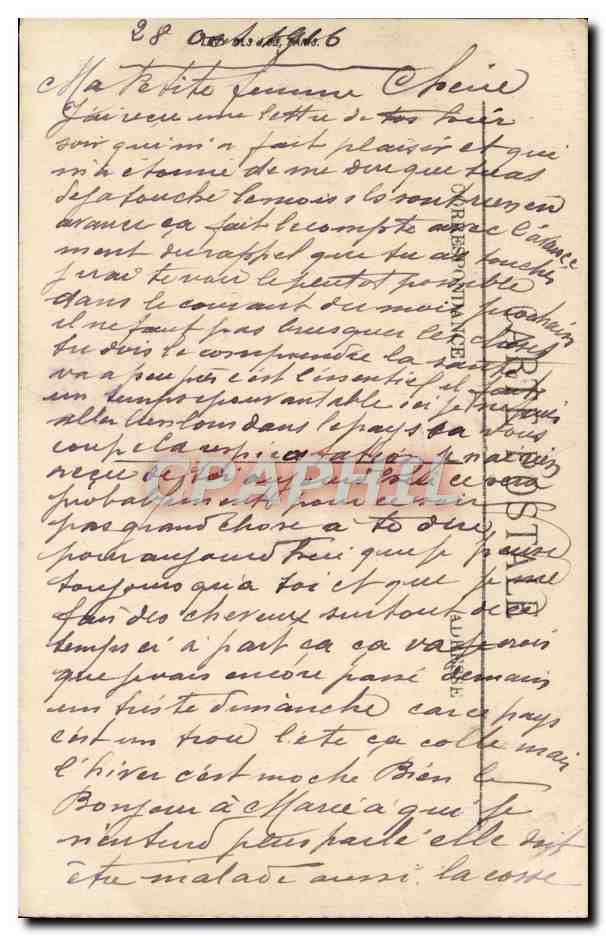 28 oct 1916
Ma Petite femme Cherie
J'ai reçu une lettre de toi hier
soir qui m'a fait plaisir et qui
m'a étonné de me dire que tu as
deja touché le mois ils sont rien en
avance ça fait le compte avec l'avance
ment du rappel que tu as touché
j'irai te voir le plutot possible
dans le courant du mois prochain
il ne faut pas brusquer les choses
tu dois le comprendre la santé
va a peu près c'est l'essentiel il fait
un temps epouvantable ici je ne vais
aller bien loin dans le pays sa vous
coupe la respiration je n'ai rien
reçu de toi aujourd'hui ce sera
probablement pour ce soir
pas grand chose a te dire
pour aujourd'hui que je pense
toujours qu'a toi et que je me
fais des cheveux surtout de ce
temps ci a part ça ça va je crois
que je vais encore passé demain
un triste dimanche car ce pays
c'est un trou l'été ça colle mais
l'hiver c'est moche Bien le
Bonjour à Marie à qui je
n'entend plus parlé elle doit
être malade aussi la cosse
CORRESPONDANCE
CARTE POSTALE
ADRESSE
CPAPHIL